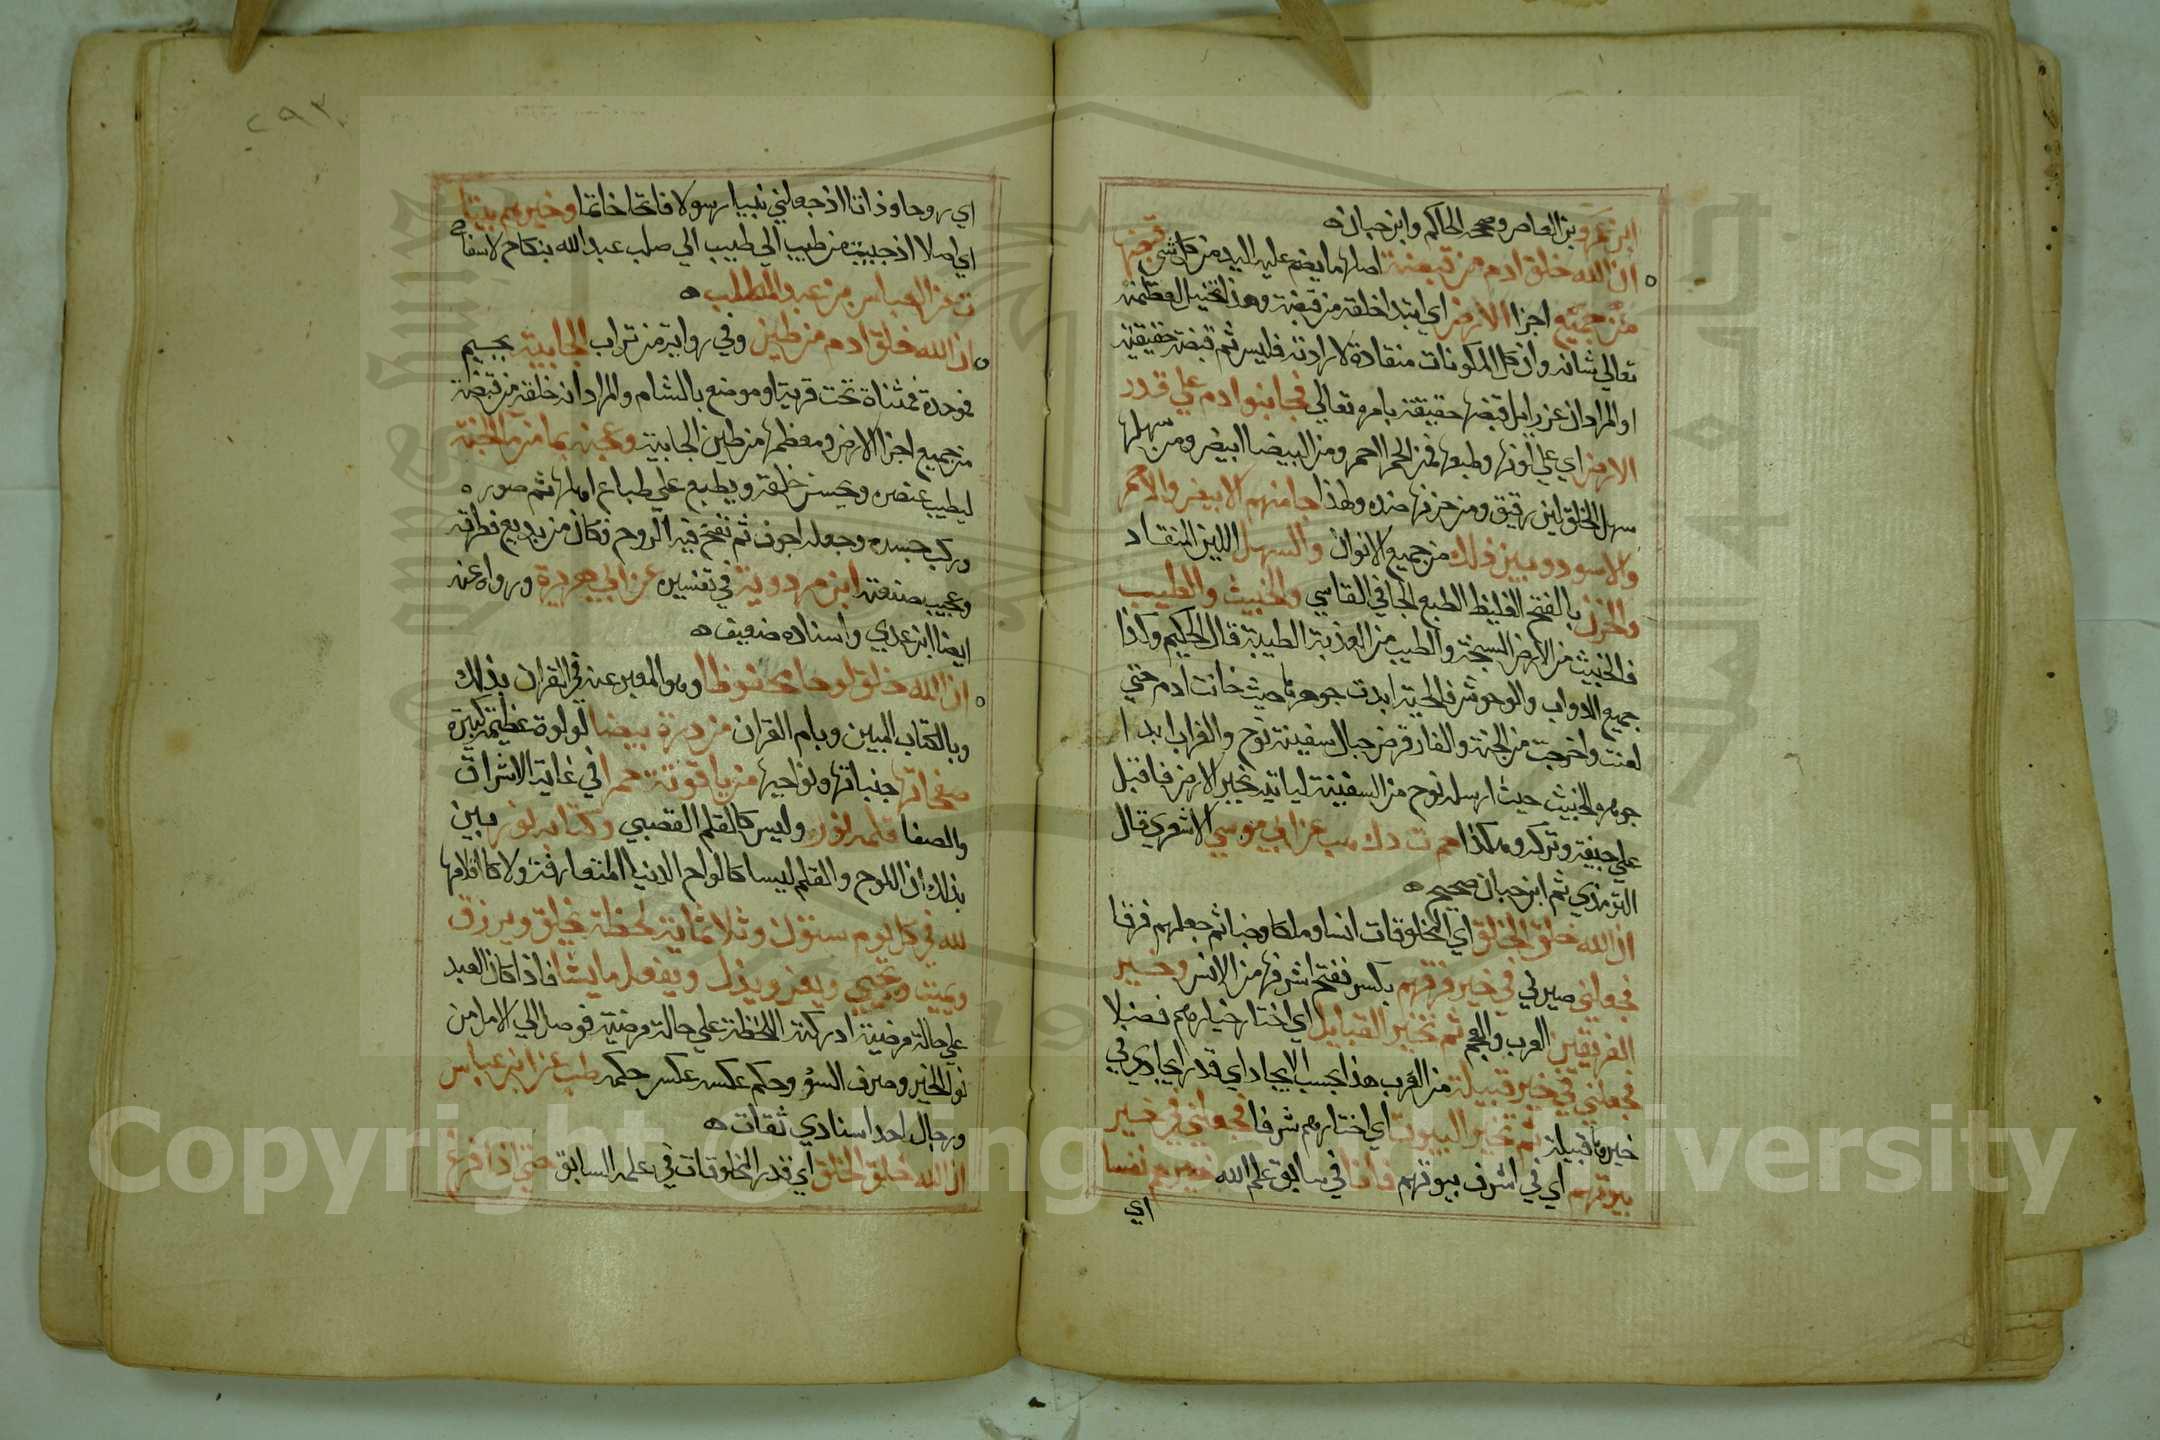 ابن عمرو بن العاص وصححه الحاكم وابن حبان ه
ان الله خلق ادم من قبضة اصلها ما يضم عليه اليد من كل شي قبضها
من جميع اجزا الارض اي ابتدا خلقه من قبضة وهذا تخييل لعظمة
تعالي شانه وان كل المكونات منقادة لارادته فليس ثم قبضة حقيقية
او المراد ان عزرايل قبضها حقيقة بامره تعالي فجا بنوا ادم علي قدر
الارض اي علي لونها وطبعها فمن الحمرا احمر ومن البيضا ابيض ومن سهلها
سهل الخلق لين رقيق ومن حزنها ضده ولهذا جا منهم الابيض والاحمر
والاسود وبين ذلك من جميع الالوان والسهل اللين المنقاد
والحزن بالفتح الغليظ الطبع الجافي القاسي والخبيث والطيب
فالخبيث من الارض السبخة والطيب من العذبة الطيبة قال الحكيم وكذا
جميع الدواب والوحوش فالحية ابدت جوهرها حيث خانت ادم حتي
لعنت واخرجت من الجنة والفار قرض حبال سفينة نوح والغراب ابدا
جوهره الخبيث حيث ارسله نوح من السفينة لياتيه بخبر الارض فاقبل
علي جيفة وتركه وهكذا حم ت د ك هب عن ابي موسي الاشعري قال
الترمذي ثم ابن حبان صحيح ه
ان الله خلق الخلق اي المخلوقات انسا وملكا وجنا ثم جعلهم فرقا
فجعلني صيرني في خير فرقهم بكسر ففتح اشرفها من الانس وخير
الفريقين العرب والعجم ثم تخير القبايل اي اختار خيارهم فضلا
فجعلني في خير قبيلة من العرب هذا بحسب الايجاد اي قدر ايجادي في
خيرها قبيلة ثم تخير البيوت اي اختارهم شرفا فجعلني في خير
بيوتهم اي في اشرف بيوتهم فانا في سابق علم الله خيرهم نفسا
اي
٢٩٣
اي روحا وذاتا اذ جعلني نبيا رسولا فاتحا خاتما وخيرهم بيتا
اي اصلا اذ جيت من طيب الي طيب الي صلب عبد الله بنكاح لا سفاح
ت عن العباس بن عبد المطلب ه
ان الله خلق ادم من طين وفي رواية من تراب الجابية بجيم
فموحدة فمثناة تحت قرية او موضع بالشام والمراد انه خلقه من قبضة
من جميع اجزا الارض ومعظمها من طين الجابية وعجنه بما من ما الجنة
ليطيب عنصره ويحسن خلقه ويطبع علي طباع اهلها ثم صوره
وركب جسده وجعله اجوف ثم نفخ فيه الروح فكان من بديع فطرته
وعجيب صنعته ابن مردوية في تفسيره عن ابي هريرة ورواه عنه
ايضا ابن عدي واسناده ضعيف ه
ان الله خلق لوحا محفوظا وهو المعبر عنه في القران بذلك
وبالكتاب المبين وبام القران من درة بيضا لولوة عظيمة كبيرة
صفحاتها جنباتها ونواحيها من ياقوتة حمرا في غاية الاشراق
والصفا قلمه نور وليس كالقلم القصبي وكتابه نور مبين
بذلك ان اللوح والقلم ليسا كالواح الدنيا المتعارفة ولا كاقلامها
لله في كل يوم ستون وثلاثماية لحظة يخلق ويرزق
ويميت ويحيي ويعز ويذل ويفعل ما يشا فاذا كان العبد
علي حالة مرضية ادركته اللحظة علي حالة مرضية فوصل الي الامل من
نول الخير وصرف السؤ وحكم عكسه عكس حكمه طب عن ابن عباس
ورجال احد اسنادي ثقات ه
ان الله خلق الخلق اي قدر المخلوقات في علمه السابق حتي اذا فرغ